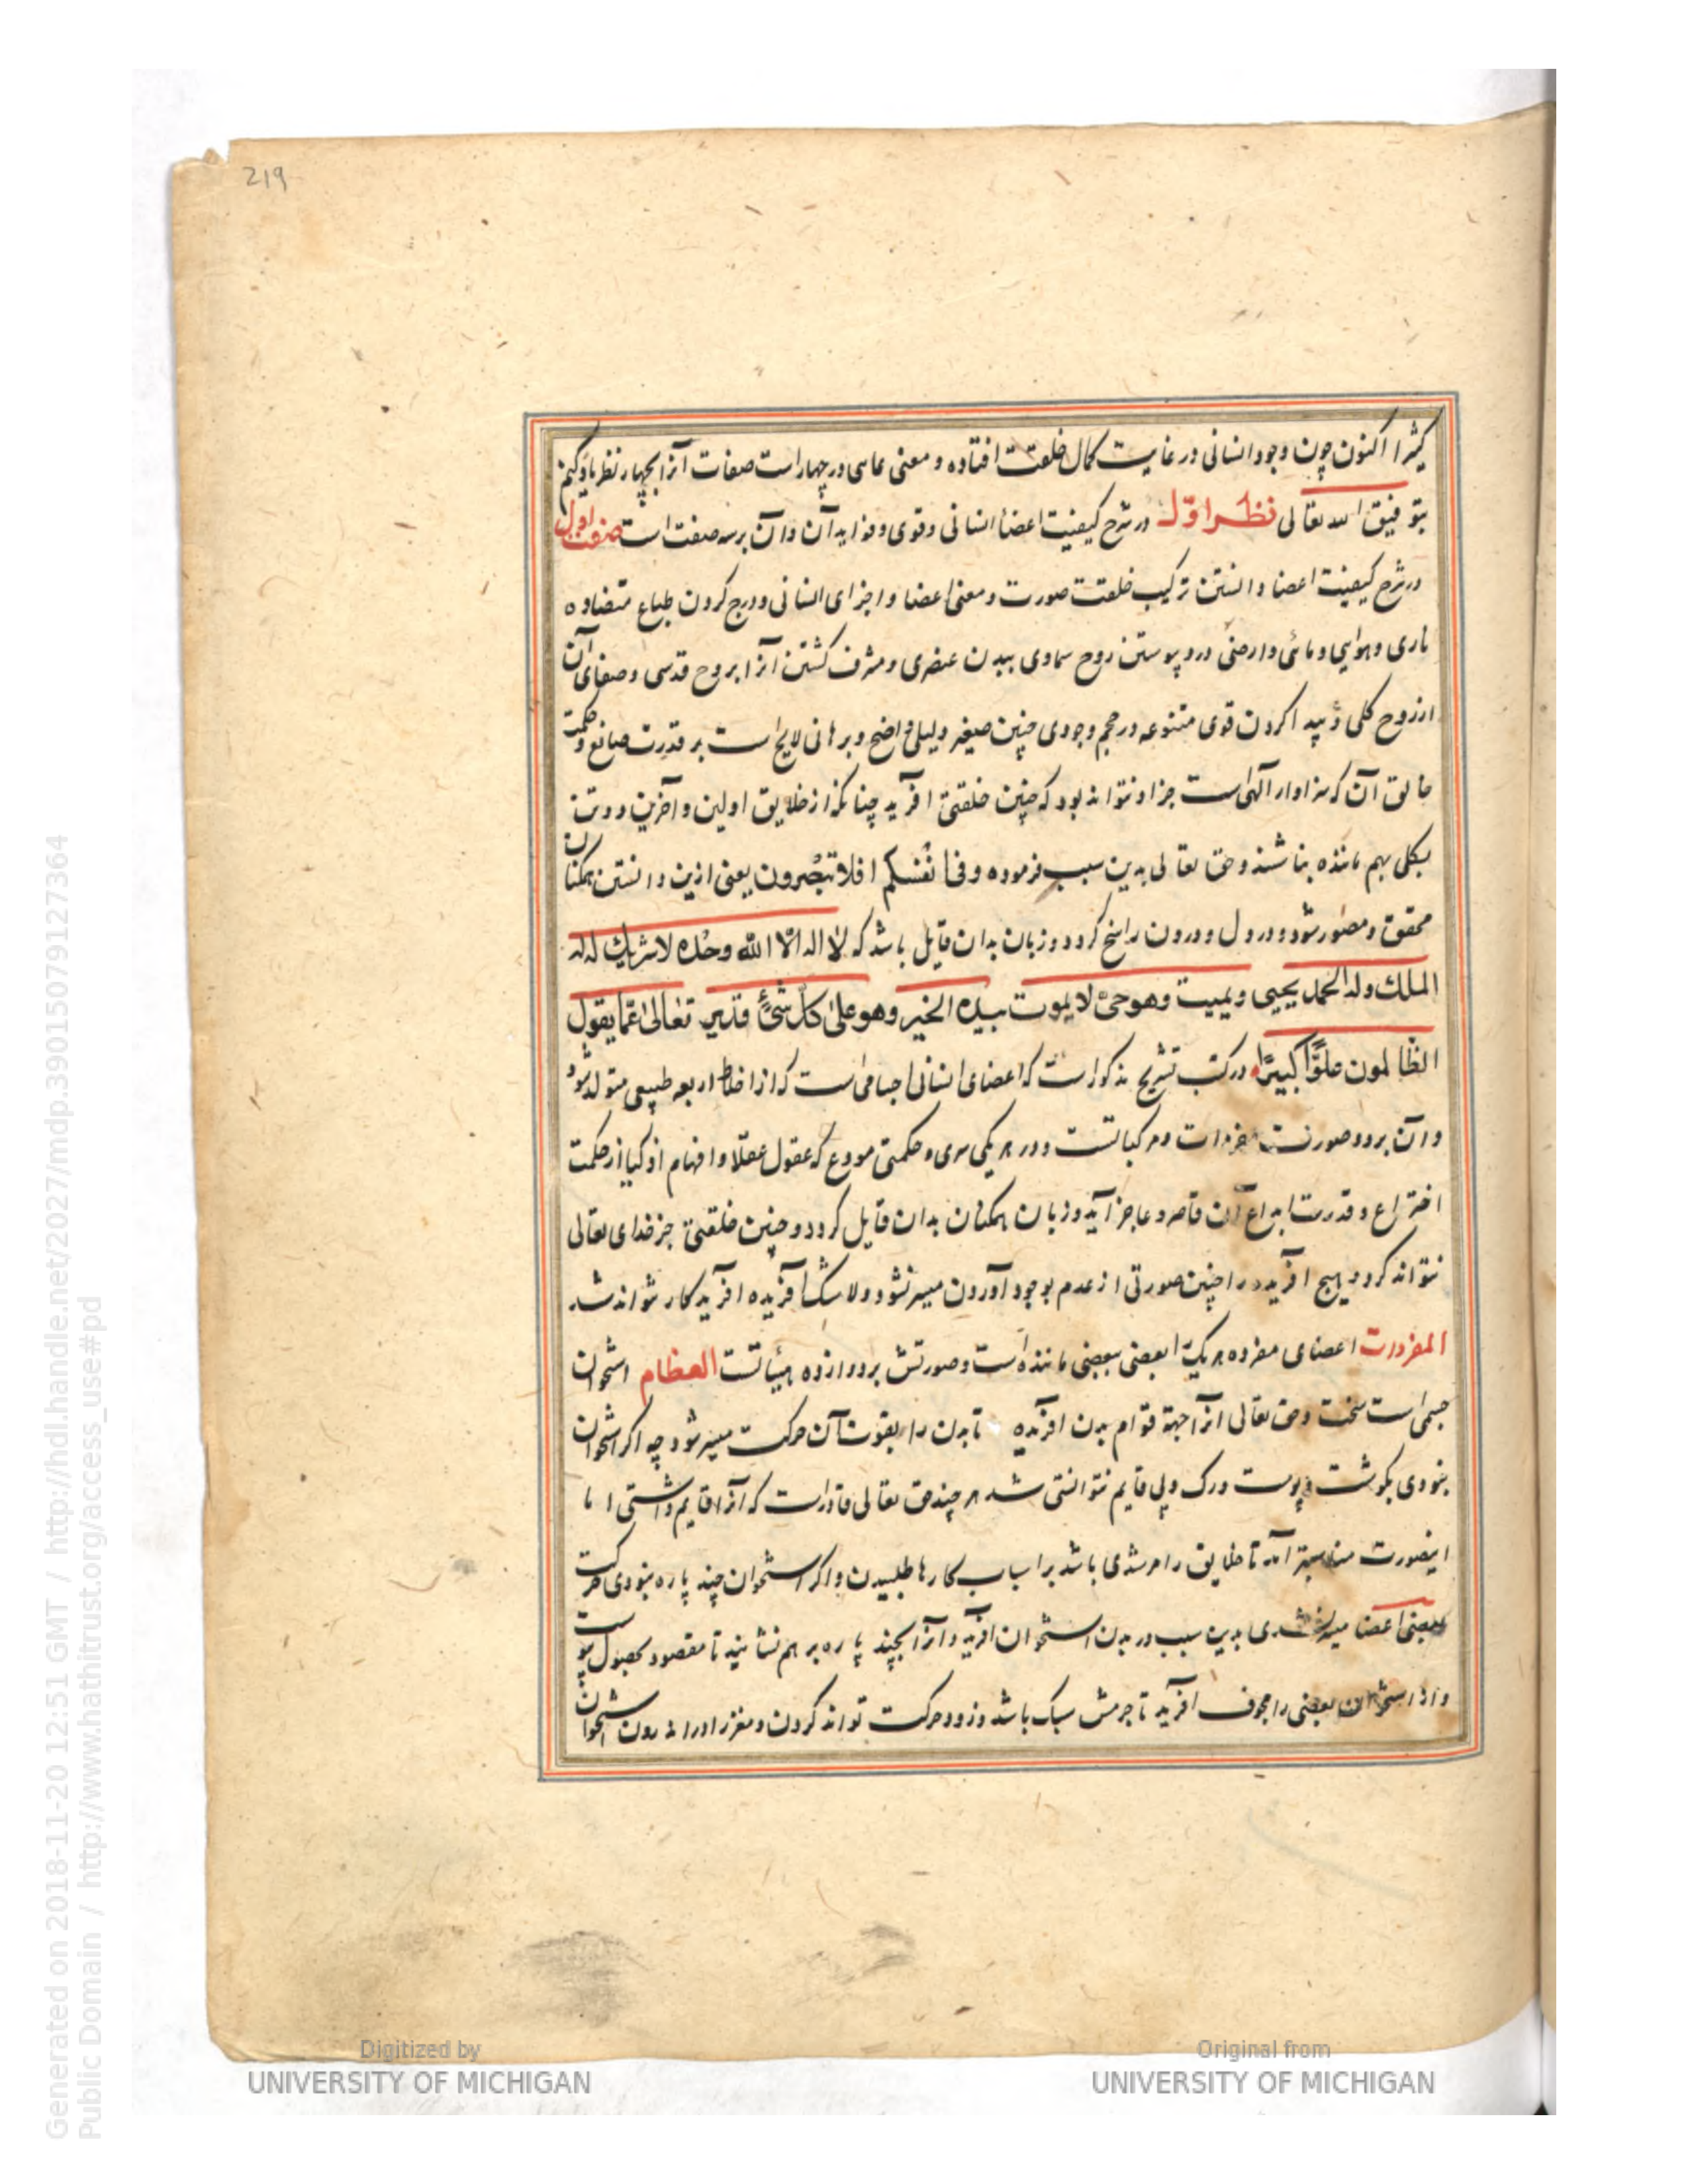 219
کثیرا اکنون چون وجود انسانی در غایت کمال خلعت افتاده و معنی عاسی در چهار است صفات آنرا بچهار نظر یاد کنیم
بتوفیق الله تعالی نظر اوّل در شرح کیفیت اعضا انسانی وقوی وفواید آن وآن برسه صفت است صفت اول
در شرح کیفیت اعضا دانستن ترکیب خلقت صورت ومعنی اعضا واجزای انسانی ودرج کردن طباع متضاده
ناری وهوایی ومائی وارضی درو پیوستن روح سماوی ببدن عنصری ومشرف کشتن آنرا بروح قدسی وصفای آن
ازروح کلی وپیدا کردن قوی متنوعه در حجم وجودی چنین صغیر دلیلی واضح وبرهانی لایح است بر قدرت صانع وحکمت
خالق آن که سزاوار الهی است جز او نتواند بود که چنین خلقتی آفرید چنانکه از خلایق اولین وآخرین دو تن
بکلی بهم ماننده نباشند وحق تعالی بدین سبب فرموده وفی انفسکم افلا تبصرون یعنی ازین دانستن همکنان
محقق ومصور شود ودر دل ودرون راسخ کردد وزبان بدان قایل باشد که لا اله الا الله وحده لا شریك له له
الملك وله الحمد یحیی ویمیت وهو حیّ لا یموت بیده الخیر وهو علی کلّ شئ قدیر تعالی عمّا یقول
الظالمون علوّاً کبیرًا در کتب تشریح مذکور است که اعضای انسانی اجسامی است که از اخلاط اربعه طبیعی متولد شود
وآن بردو صورتست مفردات ومرکباتست ودر هر یکی سری وحکمتی مودع که عقول عقلا وافهام اذکیا از حکمت
اختراع وقدرت ابداع آن قاصر وعاجز آید وزبان همکنان بدان قایل کردد وچنین خلقتی جز خدای تعالی
نتواند کرد وهیچ آفریده را چنین صورتی از عدم بوجود آوردن میسر نشود ولا شک آفریده آفریدکار نتواند شد
المفردات اعضای مفرده هر یک را بعضی ببعضی ماننده است وصورتش بر دوازده هیأتست العظام استخوان
جسمی است سخت وحق تعالی آنرا جهة قوام بدن آفریده تا بدن را بقوت آن حرکت میسر شود چه اکر استخوان
نبودی بکوشت وپوست ورک وپی قایم نتوانستی شد هر چند حق تعالی قادر است که آنرا قایم داشتی اما
اینصورت مناسبتر آمد تا خلایق را مرشدی باشد بر اسباب کارها طلبیدن واکر استخوان چند پاره نبودی حرکت
بعضی اعضا میسر نشدی بدین سبب در بدن استخوان آفرید وآنرا بچند پاره بر هم نشانید تا مقصود بحصول پیوست
واز استخوان بعضی را مجوف آفرید تا جرمش سبک باشد وزود حرکت تواند کردن ومغز را در اندرون استخوان
Digitized by
UNIVERSITY OF MICHIGAN
Original from
UNIVERSITY OF MICHIGAN
Generated on 2018-11-20 12:51 GMT / http://hdl.handle.net/2027/mdp.39015079127364
Public Domain / http://www.hathitrust.org/access_use#pd